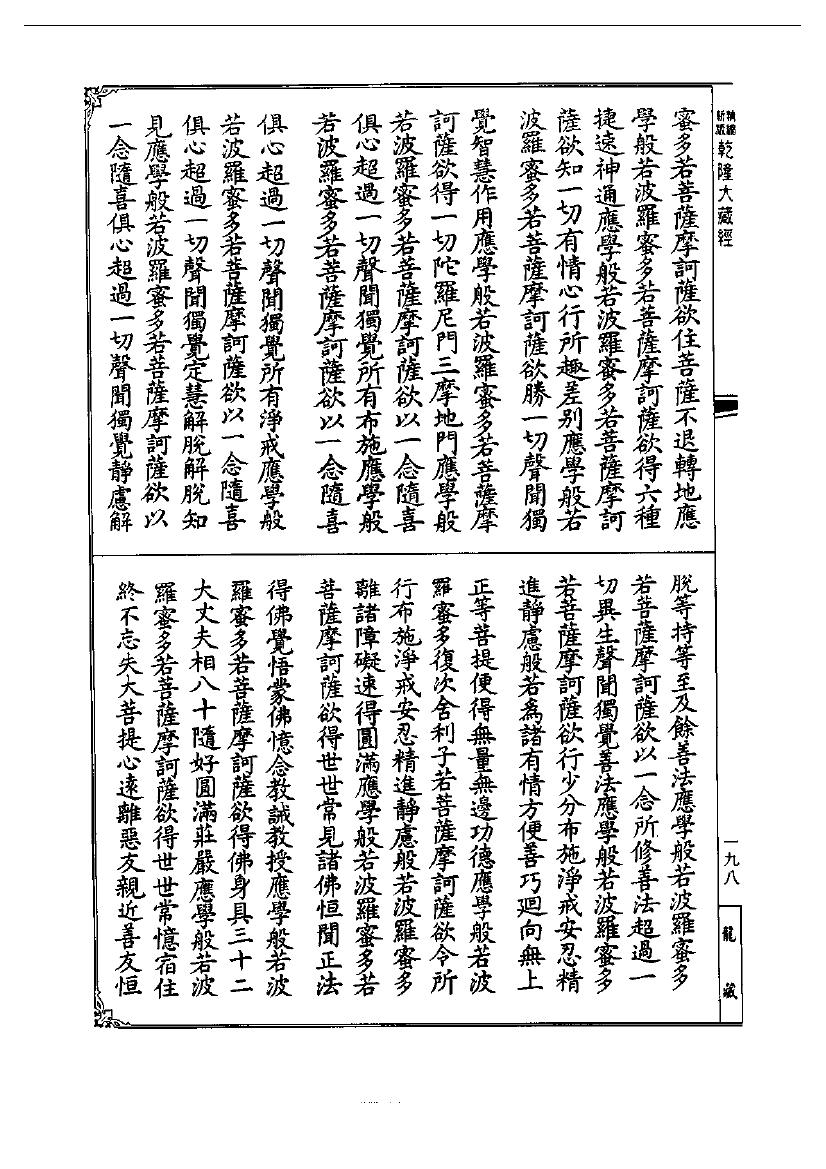 乾隆大藏經
蜜多若菩薩摩訶薩欲住菩薩不退轉地應
學般若波羅蜜多若菩薩摩訶薩欲得六種
捷速神通應學般若波羅蜜多若菩薩摩訶
薩欲知一切有情心行所趣差别應學般若
波羅蜜多若菩薩摩訶薩欲勝一切聲聞獨
覺智慧作用應學般若波羅蜜多若菩薩摩
訶薩欲得一切陀羅尼門三摩地門應學般
若波羅蜜多若菩薩摩訶薩欲以一念隨喜
俱心超過一切聲聞獨覺所有布施應學般
若波羅蜜多若菩薩摩訶薩欲以一念隨喜
俱心超過一切聲聞獨覺所有淨戒應學般
若波羅蜜多若菩薩摩訶薩欲以一念隨喜
俱心超過一切聲聞獨覺定慧解脫解脫知
見應學般若波羅蜜多若菩薩摩訶薩欲以
一念隨喜俱心超過一切聲聞獨覺靜慮解
脫等持等至及餘善法應學般若波羅蜜多
若菩薩摩訶薩欲以一念所修善法超過一
切異生聲聞獨覺善法應學般若波羅蜜多
若菩薩摩訶薩欲行少分布施淨戒安忍精
進靜慮般若爲諸有情方便善巧迴向無上
正等菩提便得無量無邊功德應學般若波
羅蜜多復次舍利子若菩薩摩訶薩欲令所
行布施淨戒安忍精進靜慮般若波羅蜜多
離諸障礙速得圓滿應學般若波羅蜜多若
菩薩摩訶薩欲得世世常見諸佛恒聞正法
得佛覺悟蒙佛憶念教誡教授應學般若波
羅蜜多若菩薩摩訶薩欲得佛身具三十二
大丈夫相八十隨好圓滿莊嚴應學般若波
羅蜜多若菩薩摩訶薩欲得世世常憶宿住
終不忘失大菩提心遠離惡友親近善友恒
一九八
龍藏